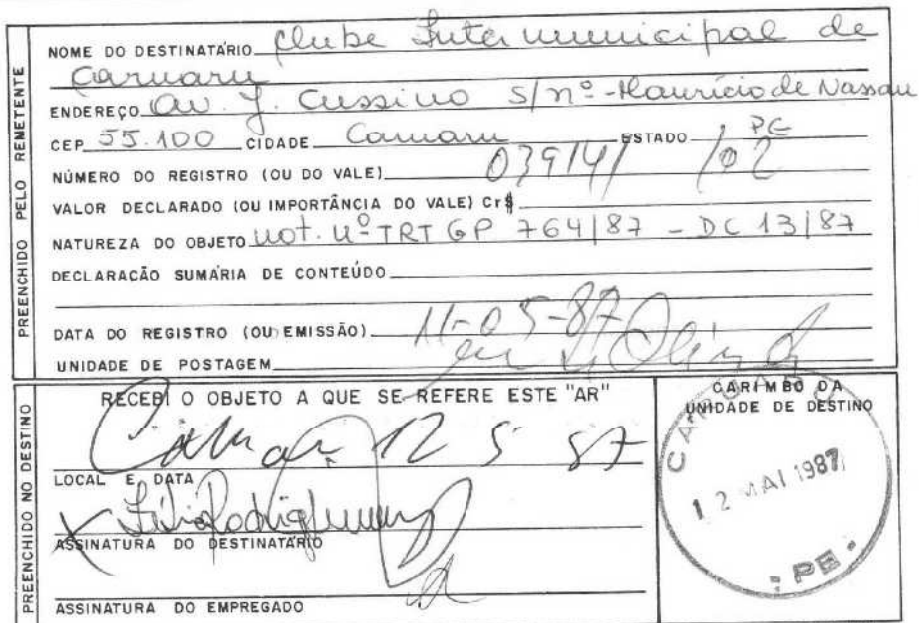 PREENCHIDO PELO REMETENTE
NOME DO DESTINATÁRIO Clube Intermunicipal de
Caruaru
ENDEREÇO Av. J. Cussino S/nº - Maurício de Nassau
CEP 55.100 CIDADE Caruaru ESTADO PE
NÚMERO DO REGISTRO (OU DO VALE) 03914/ /02
VALOR DECLARADO (OU IMPORTÂNCIA DO VALE) Cr$
NATUREZA DO OBJETO not. nº TRT GP 764/87 - DC 13/87
DECLARAÇÃO SUMÁRIA DE CONTEÚDO
DATA DO REGISTRO (OU EMISSÃO) 11-05-87
UNIDADE DE POSTAGEM
PREENCHIDO NO DESTINO
RECEBI O OBJETO A QUE SE REFERE ESTE "AR"
12 5 87
LOCAL E DATA
ASSINATURA DO DESTINATÁRIO
ASSINATURA DO EMPREGADO
CARIMBO DA
UNIDADE DE DESTINO
CARUARU
12 MAI 1987
- PE -